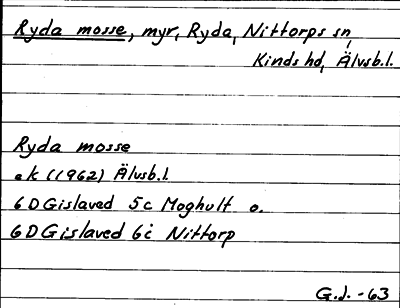 Ryda mosse, myr, Ryda, Nittorps sn,
Kinds hd, Älvsb.l.
Ryda mosse
ek (1962) Älvsb.l.
6D Gislaved 5c Moghult o.
6D Gislaved 6c Nittorp
G.J. -63